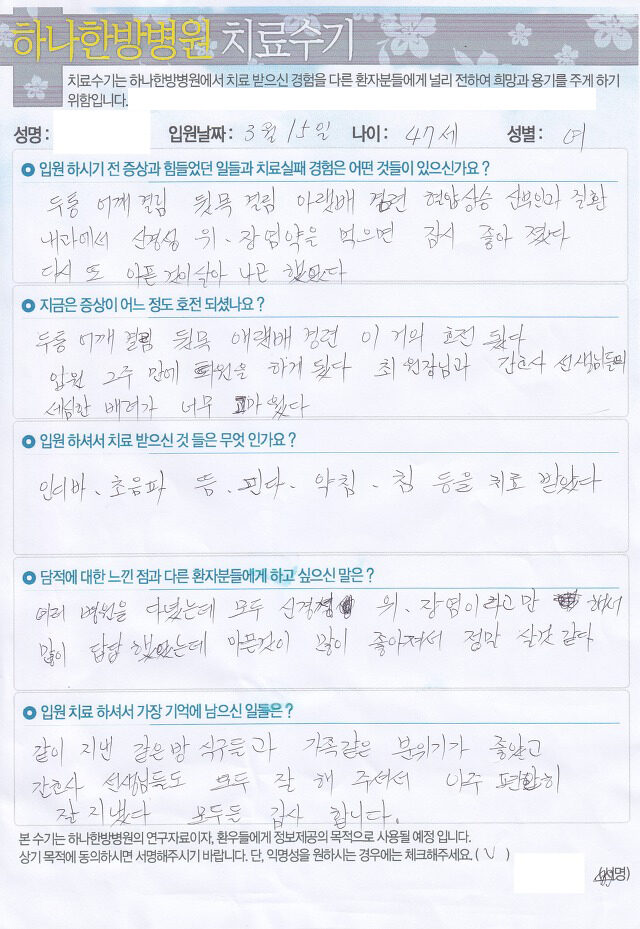 하나한방병원 치료수기
치료수기는 하나한방병원에서 치료 받으신 경험을 다른 환자분들에게 널리 전하여 희망과 용기를 주게 하기
위함입니다.
성명 : 입원날짜 : 3월 15일 나이 : 47세 성별 : 여
입원 하시기 전 증상과 힘들었던 일들과 치료실패 경험은 어떤 것들이 있으신가요 ?
두통 어깨 결림 뒷목 결림 아랫배 경련 혈압상승 산부인과 질환
내과에서 신경성 위、장염약을 먹으면 잠시 좋아 졌다
다시 또 아픈 것이 살아 나곤 했었다
지금은 증상이 어느 정도 호전 되셨나요 ?
두통 어깨 결림 뒷목 애랫배 경련 이 거의 호전 됬다
입원 2주 만에 퇴원을 하게 됬다 최 원장님과 간호사 선생님들의
세심한 배려가 너무 고마 웠다
입원 하셔서 치료 받으신 것 들은 무엇 인가요 ?
인디바、초음파 뜸、핀다、약침、침 등을 치료 받았다
담적에 대한 느낀 점과 다른 환자분들에게 하고 싶으신 말은 ?
여러 병원을 다녔는데 모두 신경성 위、장염이라고만 해서
많이 답답 했었는데 아픈것이 많이 좋아져서 정말 살것 같다
입원 치료 하셔서 가장 기억에 남으신 일들은 ?
같이 지낸 같은방 식구들과 가족같은 분위기가 좋았고
간호사 선생님들도 모두 잘 해 주셔서 아주 편안히
잘 지냈다 모두든 감사 합니다.
본 수기는 하나한방병원의 연구자료이자, 환우들에게 정보제공의 목적으로 사용될 예정 입니다.
상기 목적에 동의하시면 서명해주시기 바랍니다. 단, 익명성을 원하시는 경우에는 체크해주세요. ( V )
(서명)